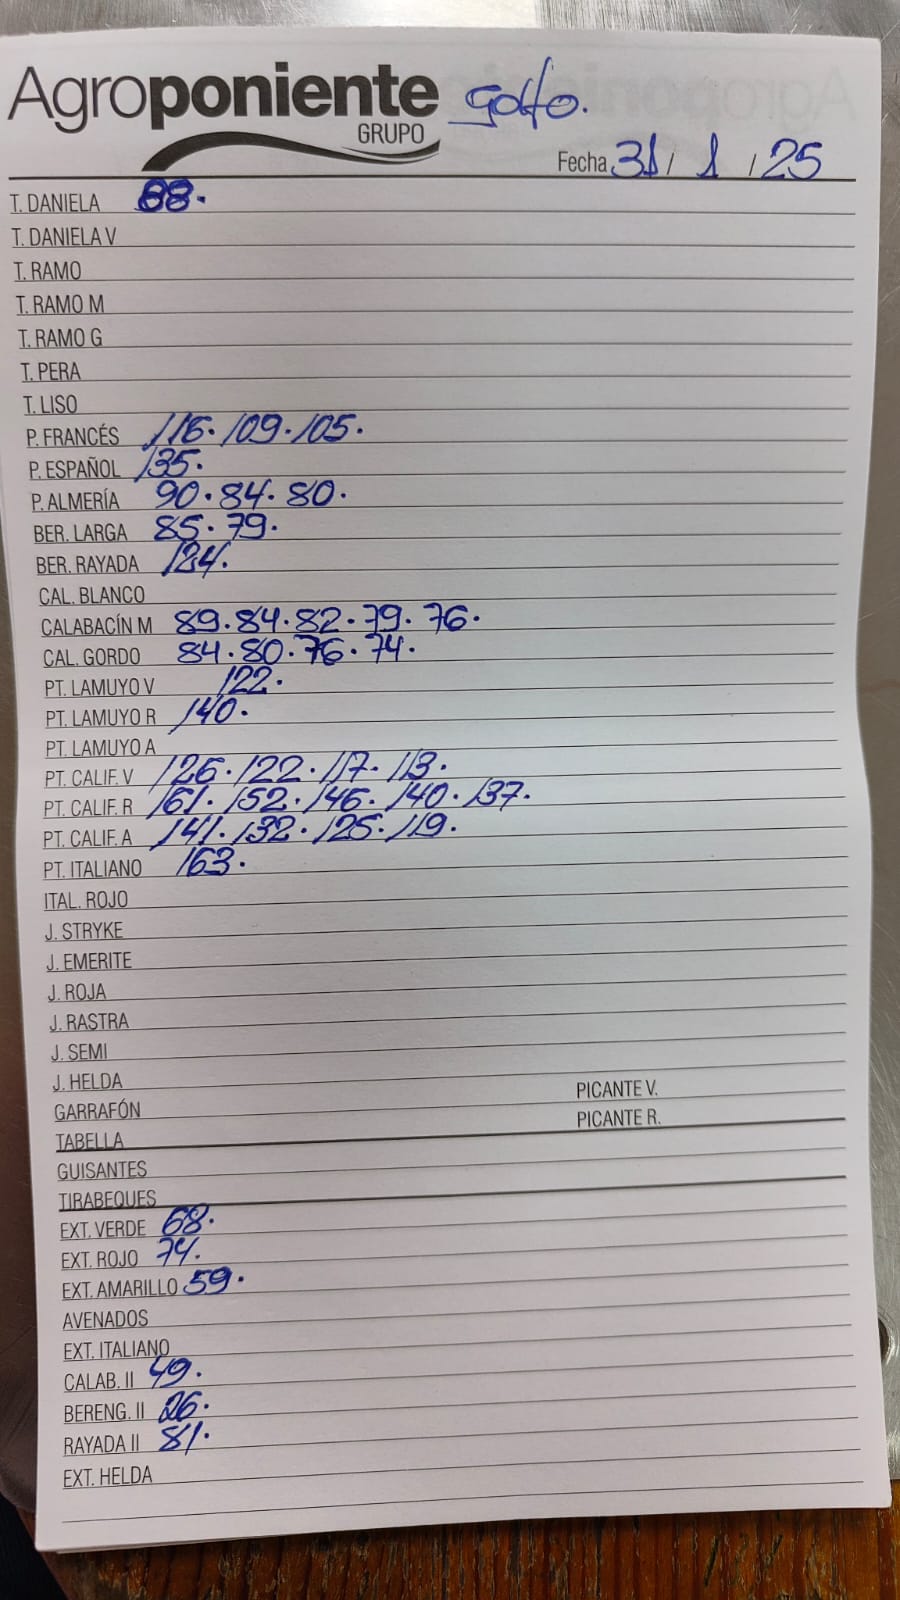 Agroponiente golfo.
GRUPO
Fecha 31 / 1 / 25
T. DANIELA 88.
T. DANIELA V
T. RAMO
T. RAMO M
T. RAMO G
T. PERA
T. LISO
P. FRANCÉS 116. 109. 105.
P. ESPAÑOL 135.
P. ALMERÍA 90. 84. 80.
BER. LARGA 85. 79.
BER. RAYADA 124.
CAL. BLANCO
CALABACÍN M 89. 84. 82. 79. 76.
CAL. GORDO 84. 80. 76. 74.
PT. LAMUYO V 122.
PT. LAMUYO R 140.
PT. LAMUYO A
PT. CALIF. V 126. 122. 117. 113.
PT. CALIF. R 161. 152. 146. 140. 137.
PT. CALIF. A 141. 132. 125. 119.
PT. ITALIANO 163.
ITAL. ROJO
J. STRYKE
J. EMERITE
J. ROJA
J. RASTRA
J. SEMI
J. HELDA PICANTE V.
GARRAFÓN PICANTE R.
TABELLA
GUISANTES
TIRABEQUES
EXT. VERDE 68.
EXT. ROJO 74.
EXT. AMARILLO 59.
AVENADOS
EXT. ITALIANO
CALAB. II 49.
BERENG. II 26.
RAYADA II 81.
EXT. HELDA